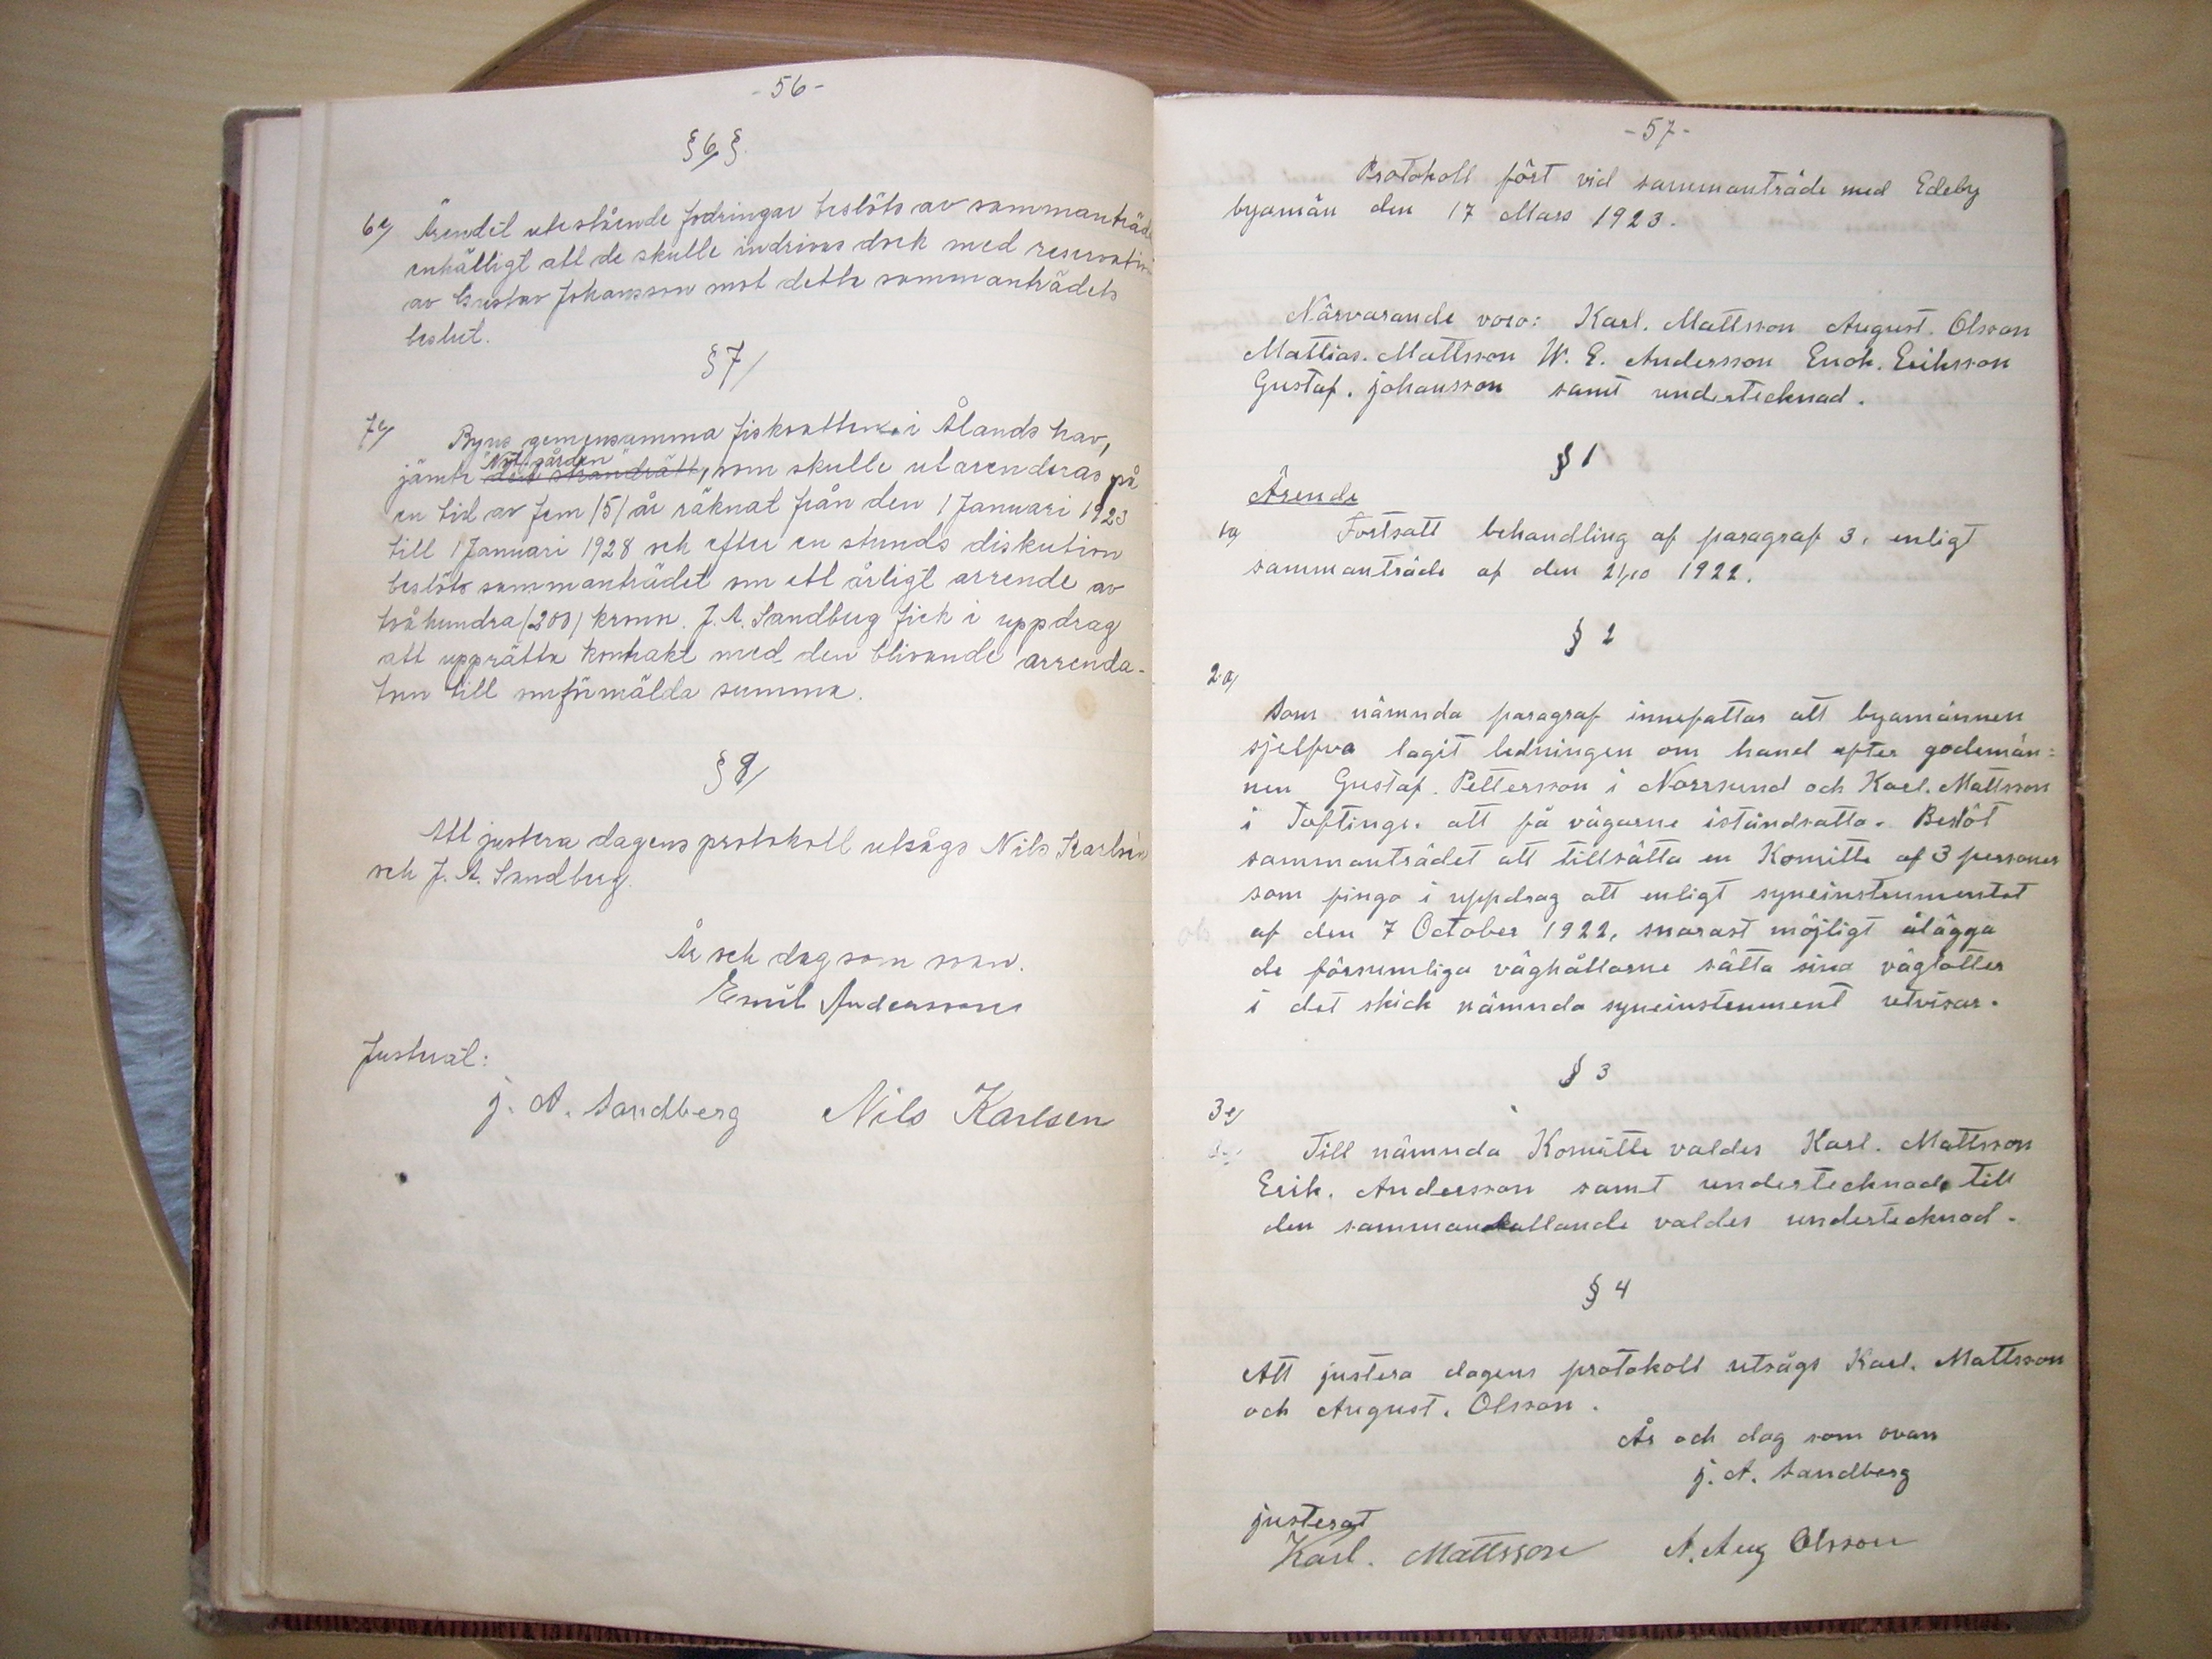 -56-
§6§.
6e/ Ärendet utestående fodringar beslöts av sammanträde
enhälligt att de skulle indrivas dock med reservation
av Gustav Johansson mot detta sammanträdets
beslut.
§7/
7e/ Byns gemensamma fiskvatten i Ålands hav,
"Notgården"
jämte det strandrätt, som skulle utarenderas på
en tid av fem /5/ år räknat från den 1 Januari 1923
till 1 Januari 1928 och efter en stunds diskution
beslöts sammanträdet om ett årligt arrende av
tvåhundra /200/ kronor. J. A. Sandberg fick i uppdrag
att upprätta kontrakt med den blivande arrenda-
torn till omförmälda summa.
§8/
Att justera dagens protokoll utsågs Nils Karlsén
och J. A. Sandberg.
År och dag som ovan.
Emil Andersson
Justerat:
j. A. Sandberg Nils Karlsen
-57-
Protokoll fört vid sammanträde med Edeby
byamän den 17 Mars 1923.
Närvarande voro: Karl. Mattsson August. Olsson
Mattias. Mattsson W. E. Andersson Enok. Eriksson
Gustaf. johansson samt undertecknad.
§ 1
Ärende
1a/ Fortsatt behandling af paragraf 3, enligt
sammanträde af den 21/10 1922.
§ 2
2a/
Som nämnda paragraf innefattar att byamännen
sjelfva tagit ledningen om hand efter godemän=
nen Gustaf. Pettersson i Norrsund och Karl. Mattsson
i Töftinge. att få vägarne iståndsatta. Beslöt
sammanträdet att tillsätta en Komitte af 3 personer
som fingo i uppdrag att enligt syneinstrumentet
af den 7 October 1922, snarast möjligt ålägga
de försumliga väghållarne sätta sina väglotter
i det skick nämnda syneinstrument utvisar.
§ 3
3e/
Till nämnda Komitte valdes Karl. Mattsson
Erik. Andersson samt undertecknade till
den sammankallande valdes undertecknad.
§ 4
Att justera dagens protokoll utsågs Karl. Mattsson
och August. Olsson.
År och dag som ovan
j. A. Sandberg
justerat
Karl. Mattsson A. Aug Olsson